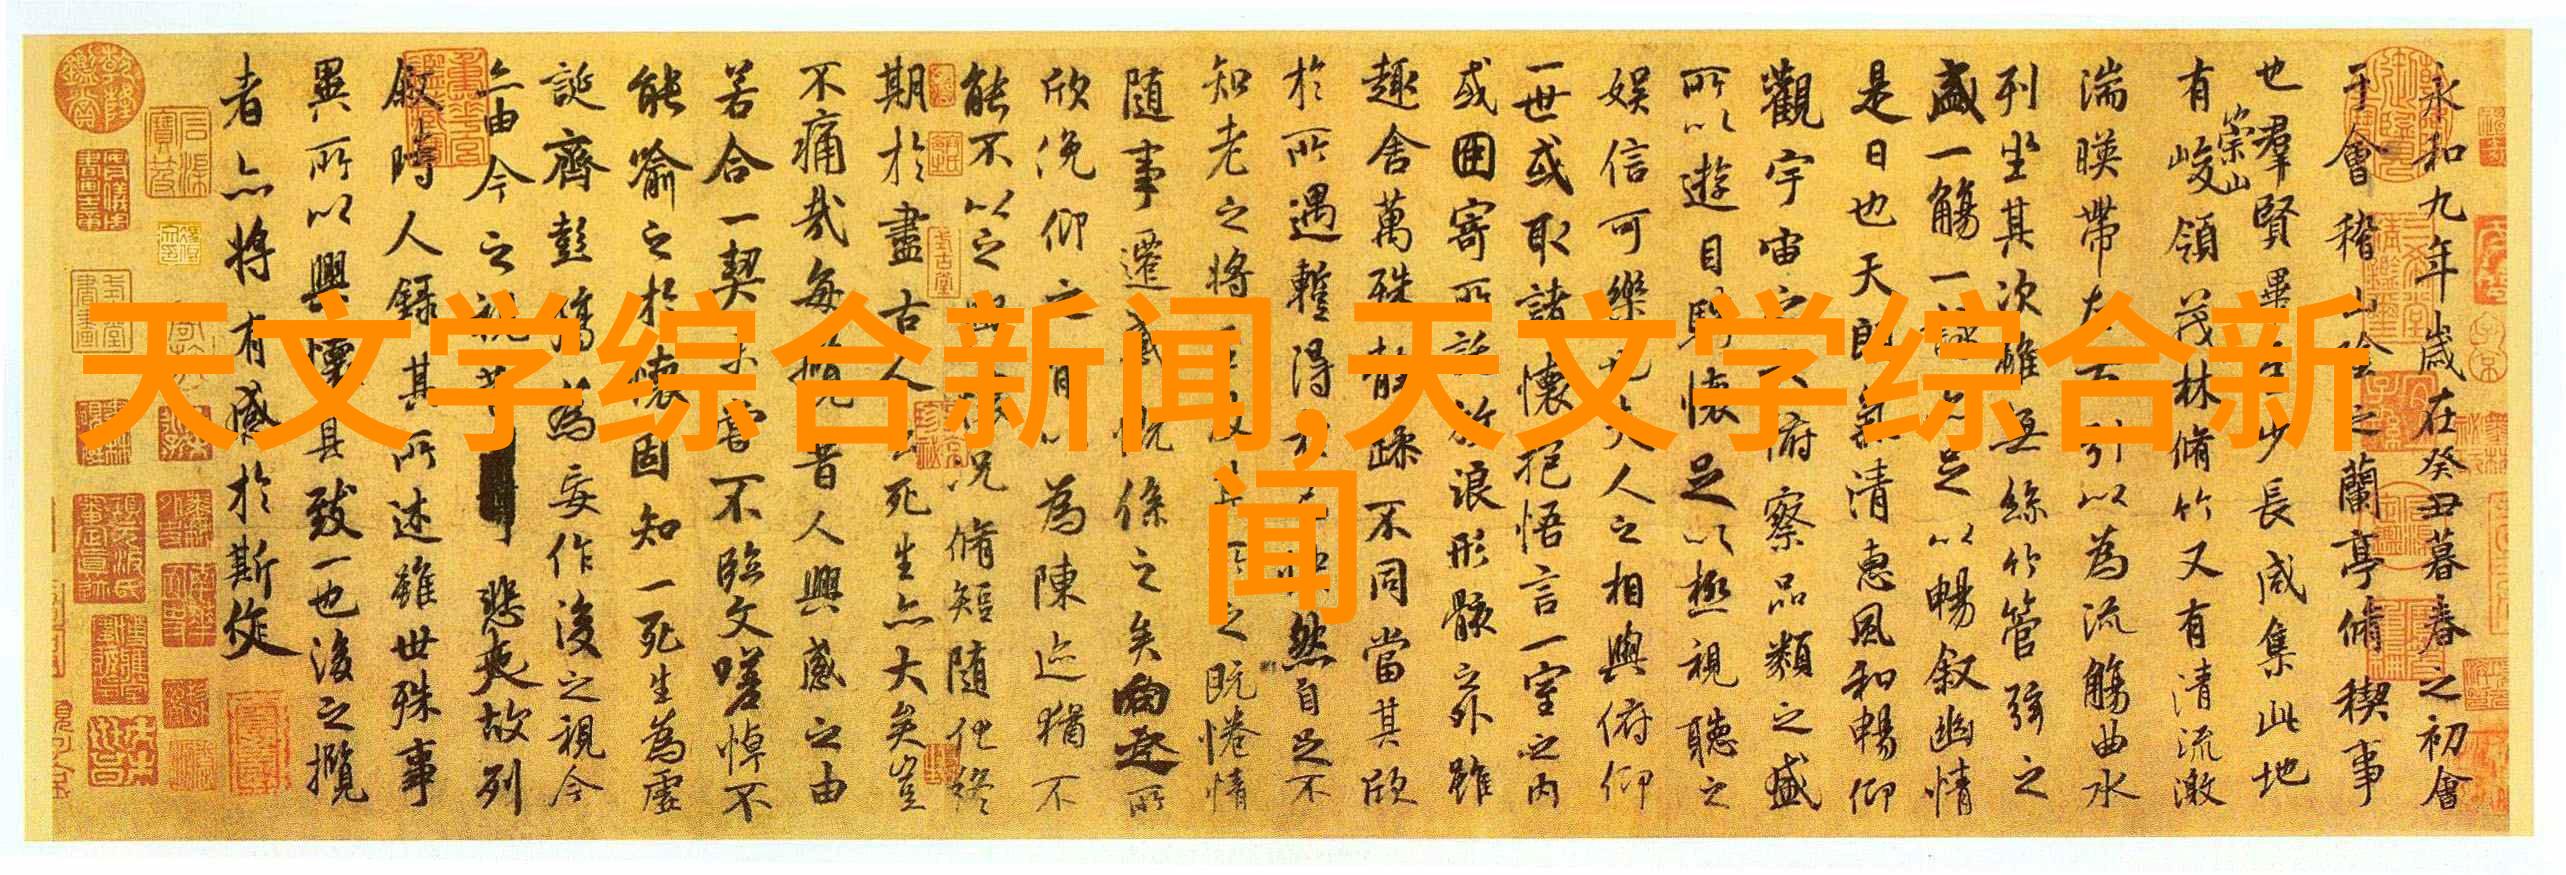 天文学综合新闻,天文学综合新
闻
永和九年歲在癸丑暮春之初會
于會稽山陰之蘭亭脩稧事
也羣賢畢至少長咸集此地
有崇山峻領茂林脩竹又有清流激
湍暎帶左右引以為流觴曲水
列坐其次雖無絲竹管弦之
盛一觴一詠亦足以暢叙幽情
是日也天朗氣清惠風和暢仰
觀宇宙之大俯察品類之盛
所以遊目騁懷足以極視聽之
娛信可樂也夫人之相與俯仰
一世或取諸懷抱悟言一室之內
或因寄所託放浪形骸之外雖
趣舍萬殊靜躁不同當其欣
於所遇暫得然自足不
知老之將之既惓情
隨事遷感慨係之矣向之所
欣俛仰之以為陳迹猶不
能不以之興懷況脩短隨化終
期於盡古人云死生亦大矣豈
不痛哉每攬昔人興感之由
若合一契未嘗不臨文嗟悼不
能喻之於懷固知一死生為虛
誕齊彭殤為妄作後之視今
亦由今之視昔悲夫故列
叙時人錄其所述雖世殊事
異所以興懷其致一也後之攬
者亦將有感於斯文